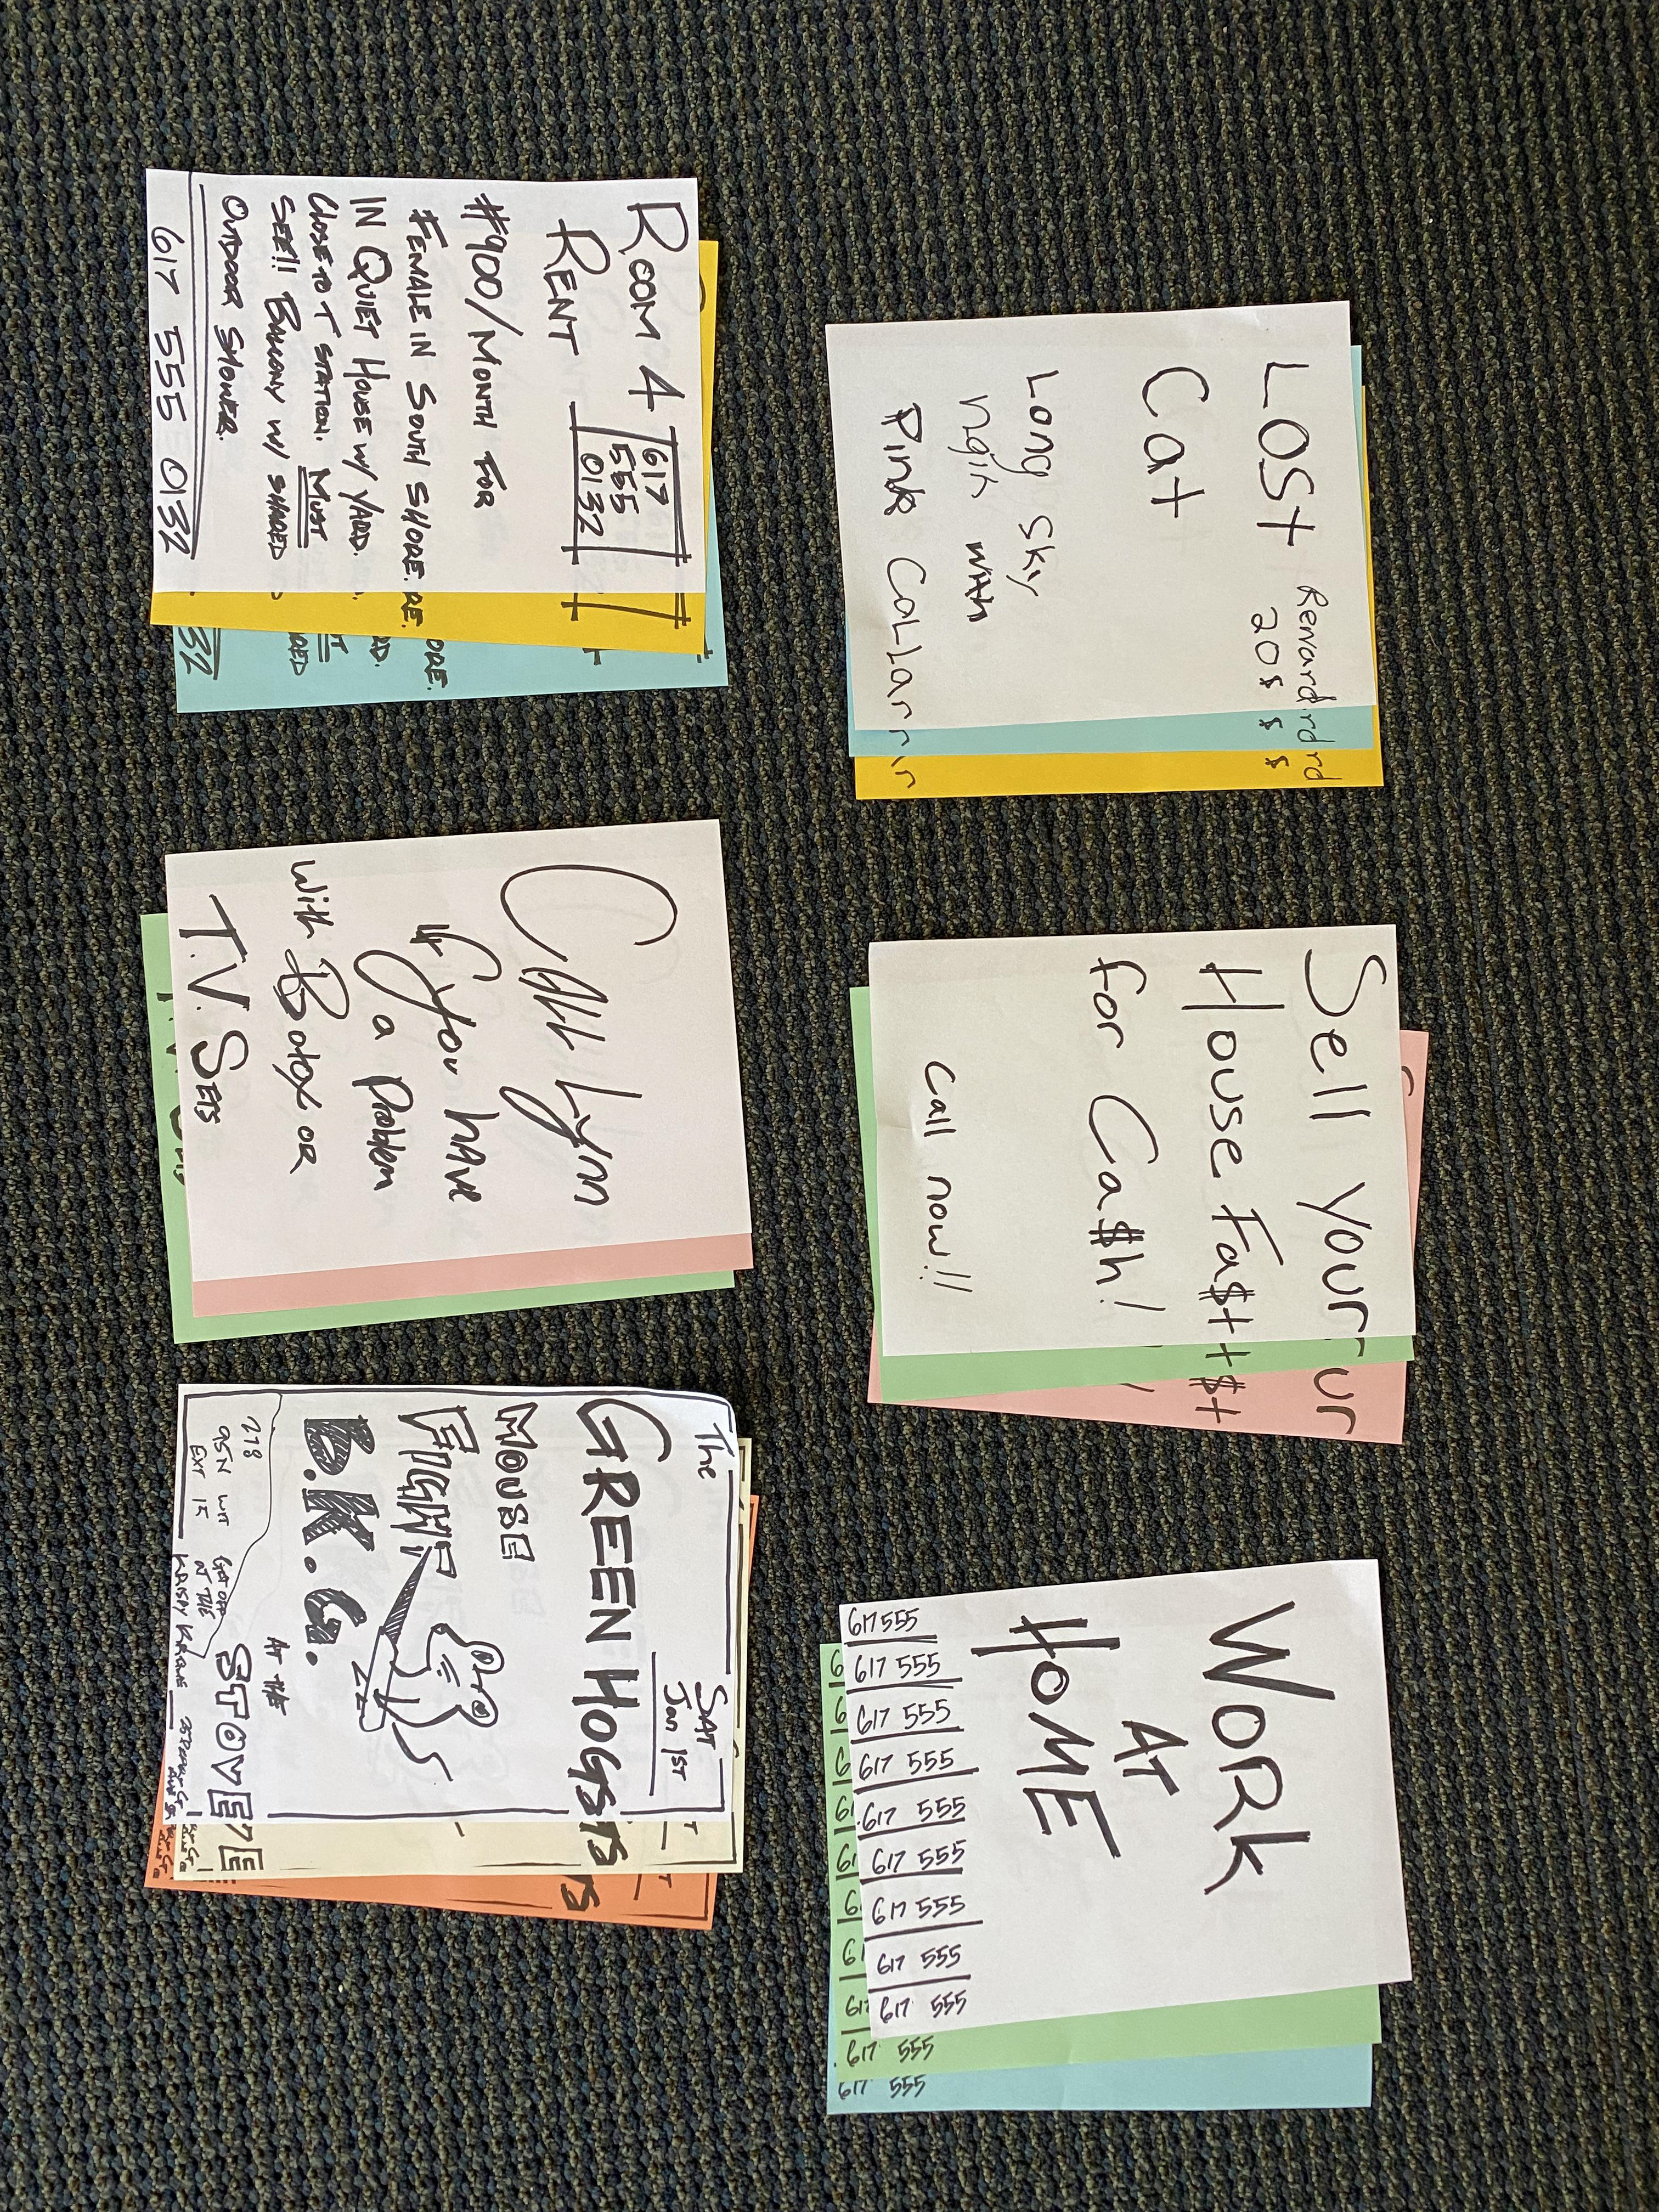 LOST
Reward
20$
Cat
Long Sky
with
Pink Collar
Sell Your
House Fa$t
for Ca$h!
Call now!!
WORK
AT
HOME
617 555
617 555
617 555
617 555
617 555
617 555
617 555
617 555
617 555
617 555
617 555
ROOM 4
RENT
617
555
0132
#900/MONTH FOR
FEMALE IN SOUTH SHORE.
IN QUIET HOUSE W/ YARD.
CLOSE TO T STATION. MUST
SEE!! BALCONY W/ SHARED
OUTDOOR SHOWER.
617 555 0132
Call Lynn
If you have
a Problem
with Botox or
T.V. SETS
The
SAT
Jan 1ST
GREEN HOGS
MOUSE
FIGHT
B.K.G.
AT THE
STOVE
218
95N
EXT 15
GET OFF
AT THE